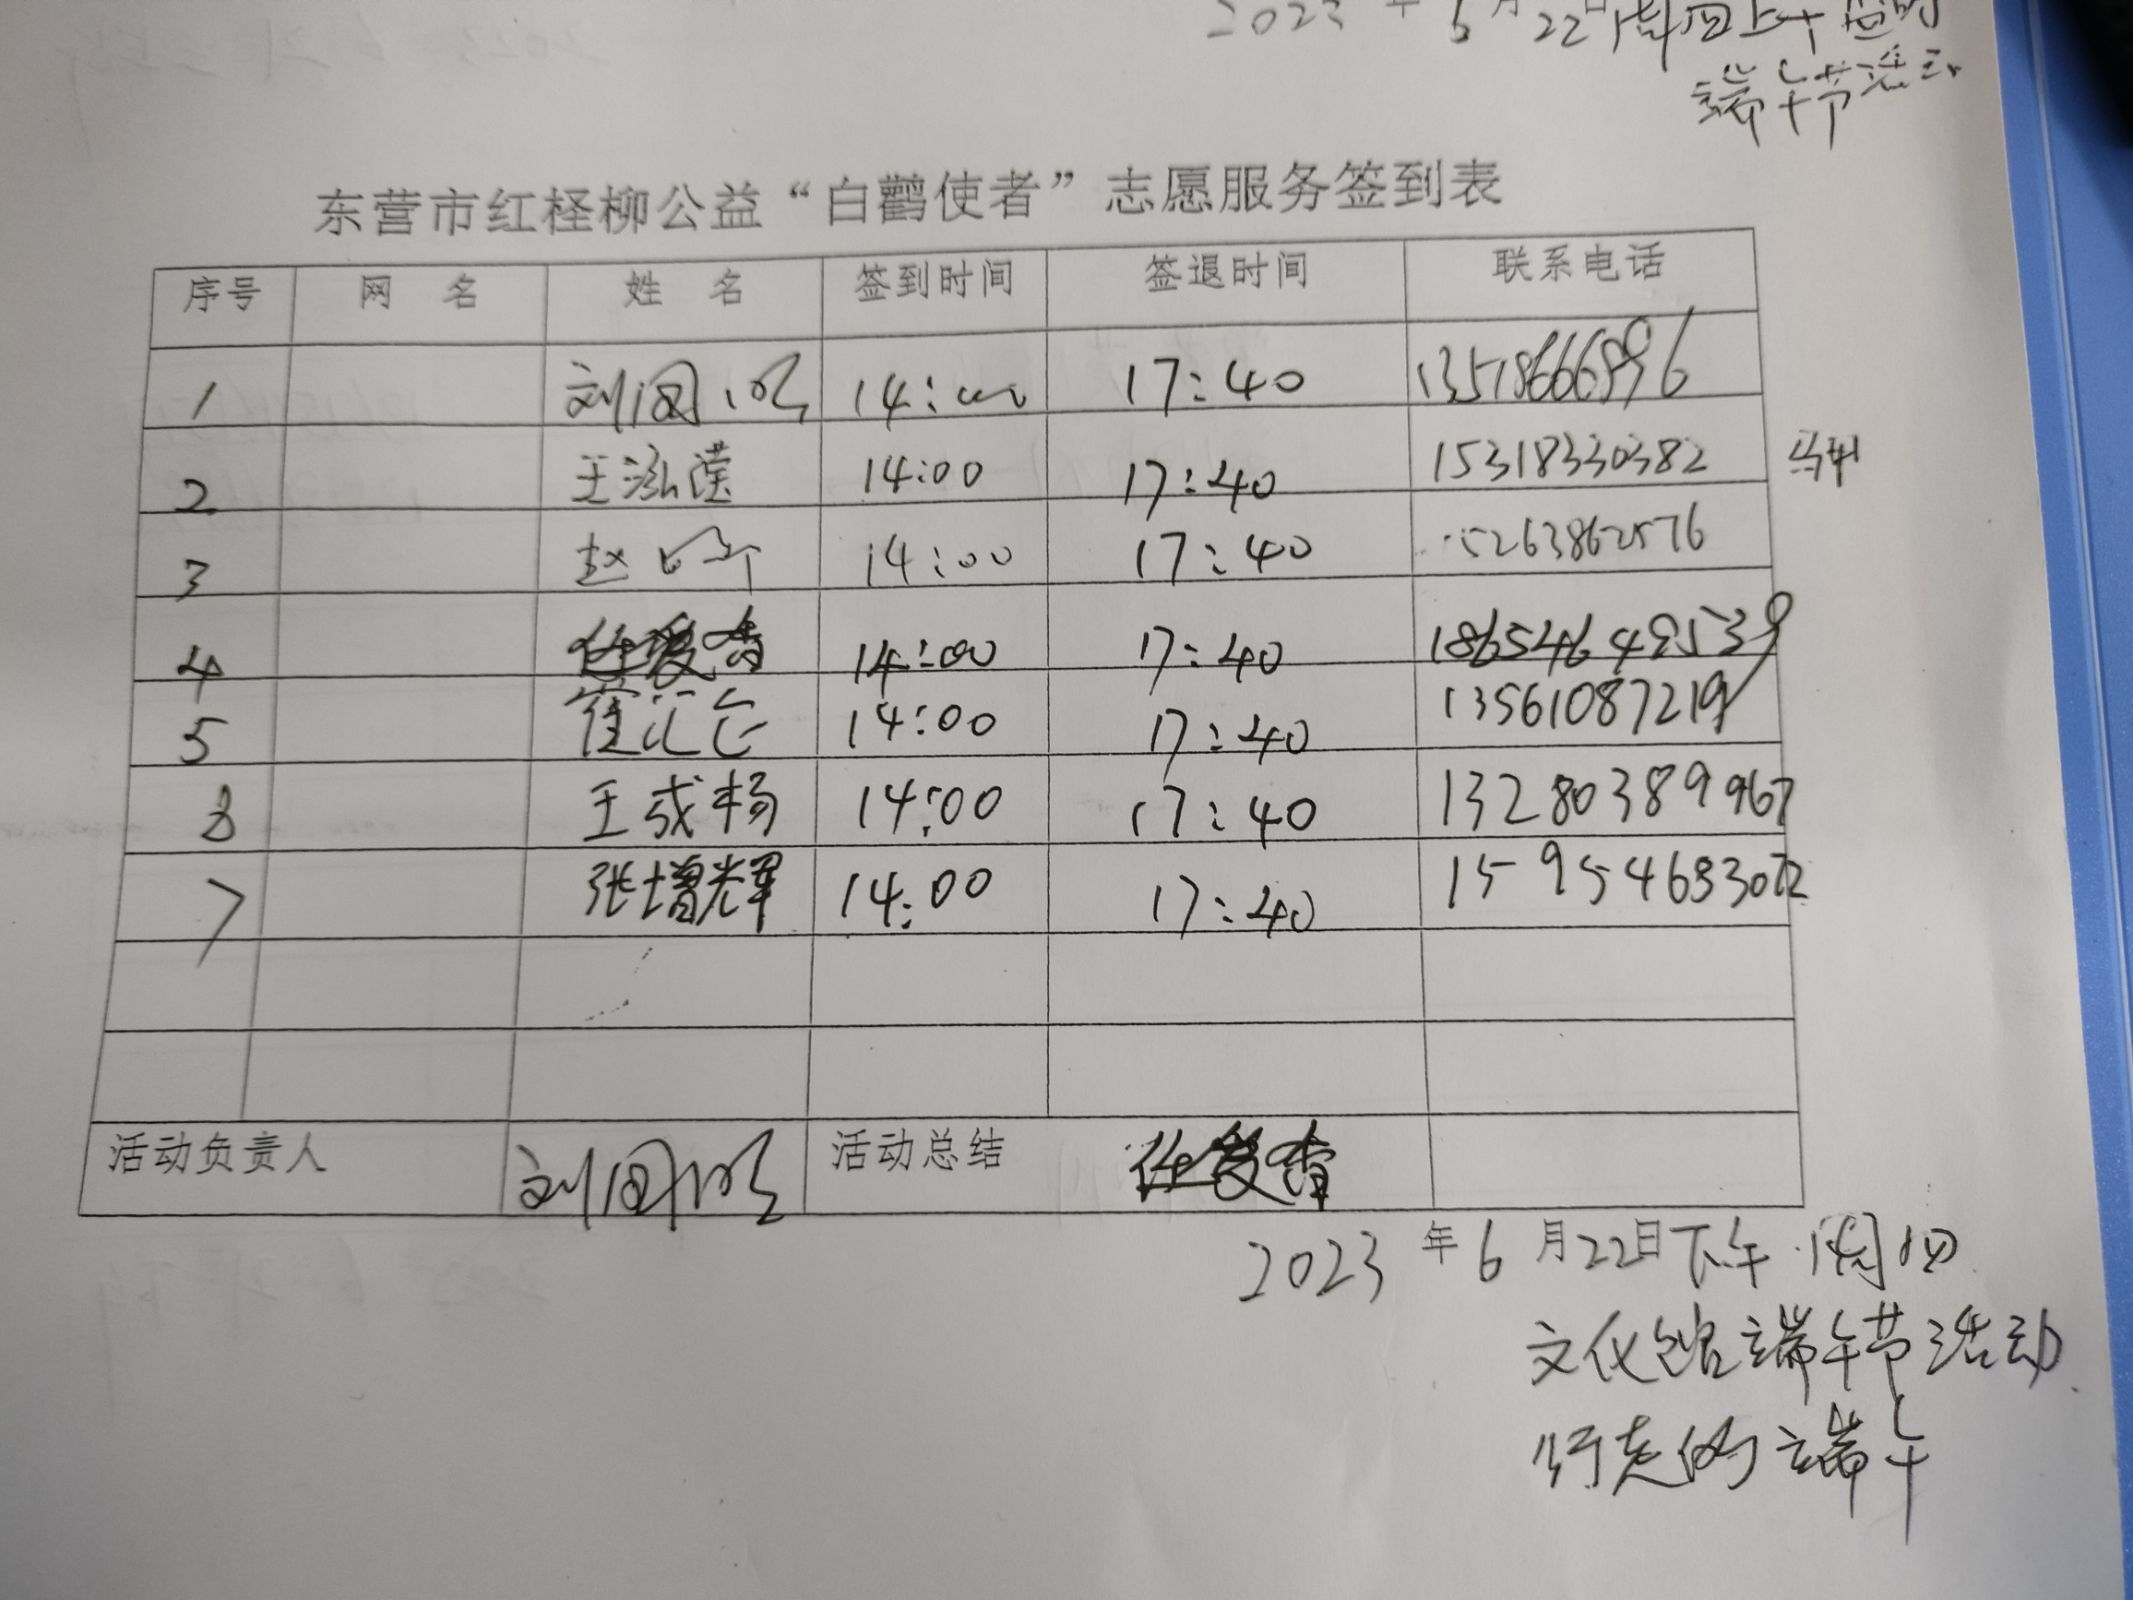 2023 年 6 月 22日 周四上午
端午节活动
东营市红柽柳公益“白鹳使者”志愿服务签到表
序号 网 名 姓 名 签到时间 签退时间 联系电话
1 刘国明 14:00 17:40
2 王泓滢 14:00 17:40 15318330382
3 赵 14:00 17:40 15263862576
4 任爱香 14:00 17:40
5 崔汇仓 14:00 17:40 13561087219
6 王成杨 14:00 17:40 13280389967
7 张增辉 14:00 17:40
活动负责人 刘国明 活动总结 任爱香
2023 年 6 月 22日下午 周四
文化馆端午节活动
行走的端午